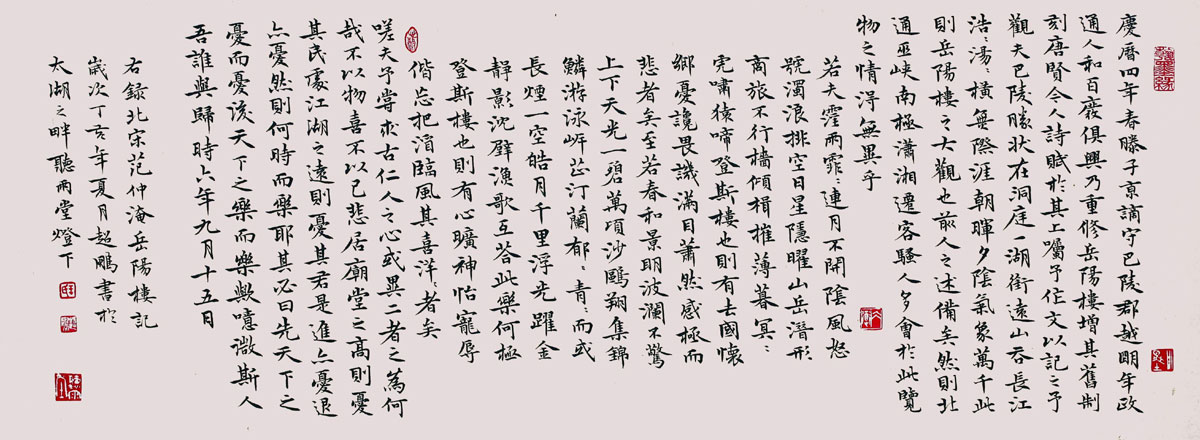 慶曆四年春滕子京謫守巴陵郡越明年政
通人和百廢俱興乃重修岳陽樓增其舊制
刻唐賢今人詩賦於其上囑予作文以記之予
觀夫巴陵勝狀在洞庭一湖銜遠山吞長江
浩〻湯〻橫無際涯朝暉夕陰氣象萬千此
則岳陽樓之大觀也前人之述備矣然則北
通巫峽南極瀟湘遷客騷人多會於此覽
物之情得無異乎
若夫霪雨霏〻連月不開陰風怒
號濁浪排空日星隱曜山岳潛形
商旅不行檣傾楫摧薄暮冥〻
虎嘯猿啼登斯樓也則有去國懷
鄉憂讒畏譏滿目蕭然感極而
悲者矣至若春和景明波瀾不驚
上下天光一碧萬頃沙鷗翔集錦
鱗游泳岸芷汀蘭郁〻青〻而或
長煙一空皓月千里浮光躍金
靜影沈璧漁歌互答此樂何極
登斯樓也則有心曠神怡寵辱
偕忘把酒臨風其喜洋〻者矣
嗟夫予嘗求古仁人之心或異二者之為何
哉不以物喜不以己悲居廟堂之高則憂
其民處江湖之遠則憂其君是進亦憂退
亦憂然則何時而樂耶其必曰先天下之
憂而憂後天下之樂而樂歟噫微斯人
吾誰與歸時六年九月十五日
右錄北宋范仲淹岳陽樓記
歲次丁亥年夏月超鵬書於
太湖之畔聽雨堂燈下